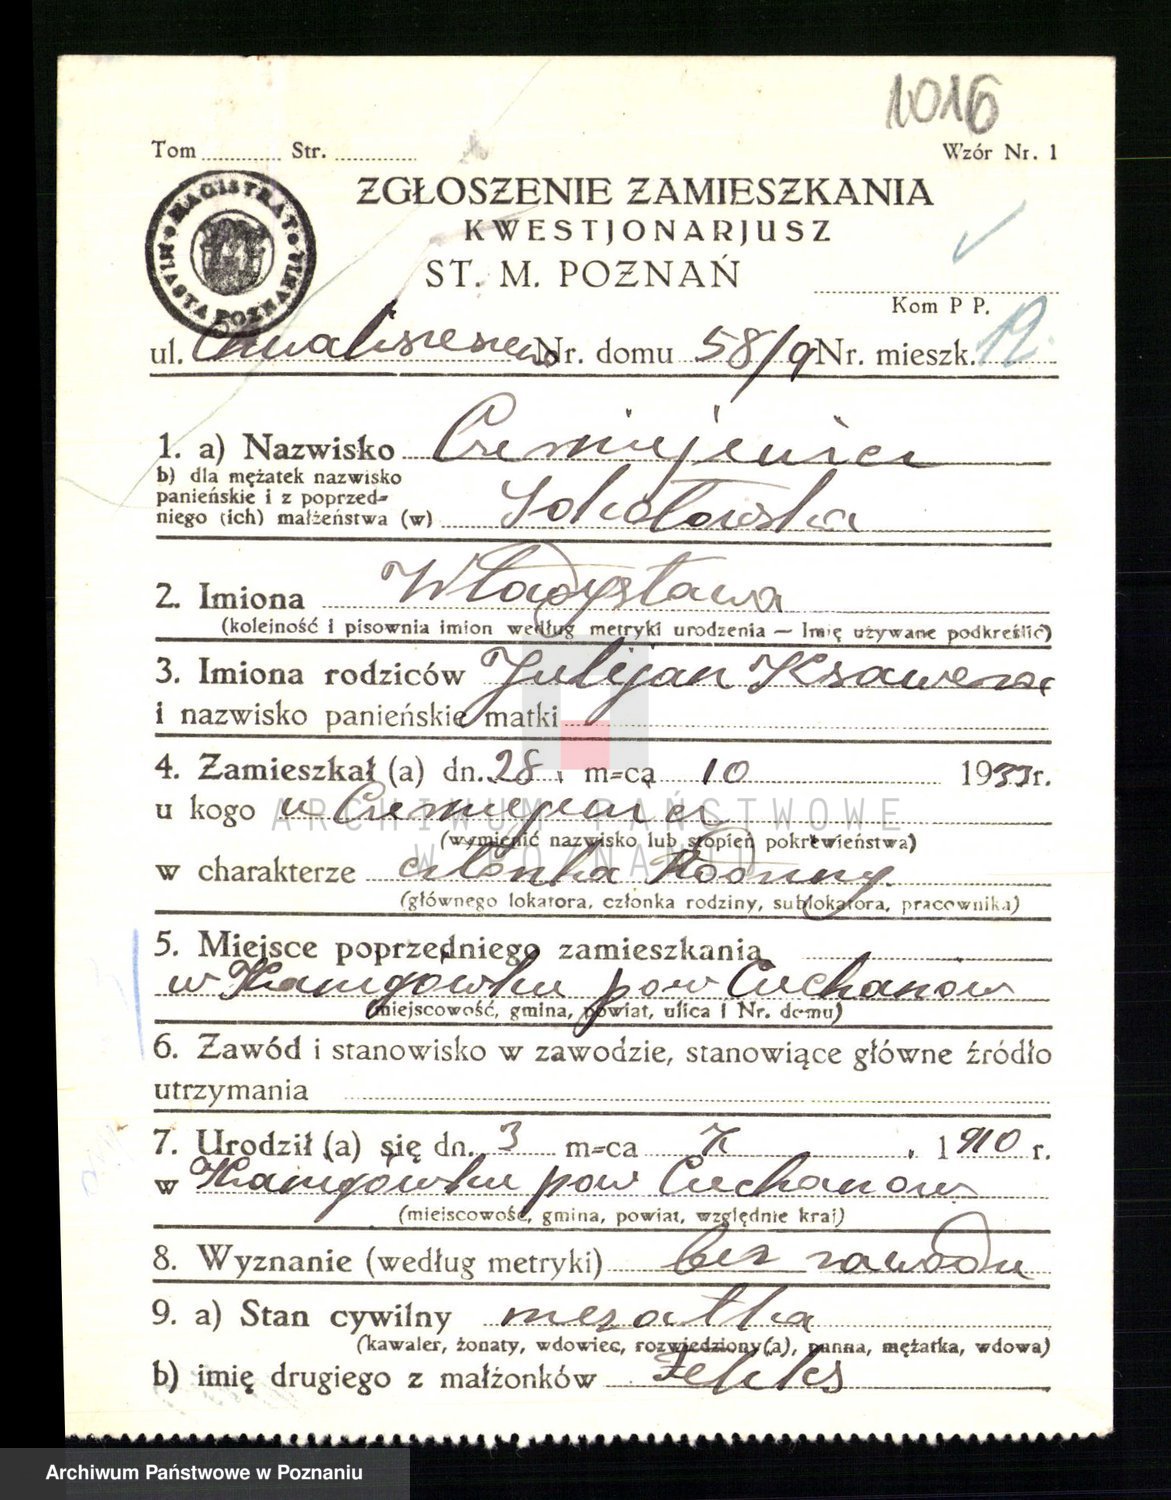 1016
Tom Str. Wzór Nr. 1
MAGISTRAT MIASTA POZNANIA
ZGŁOSZENIE ZAMIESZKANIA
KWESTJONARJUSZ
ST. M. POZNAŃ
Kom P P.
ul. Chwaliszewo Nr. domu 58/9 Nr. mieszk. 12.
1. a) Nazwisko
b) dla mężatek nazwisko
panieńskie i z poprzed-
niego (ich) małżeństwa (w) Sokołowska
2. Imiona Władysława
(kolejność i pisownia imion według metryki urodzenia — Imię używane podkreślić)
3. Imiona rodziców Julijan Ksawera
i nazwisko panieńskie matki
4. Zamieszkał (a) dn. 28. m-ca 10 1933 r.
u kogo u
(wymienić nazwisko lub stopień pokrewieństwa)
w charakterze członka Rodziny
(głównego lokatora, członka rodziny, sublokatora, pracownika)
5. Miejsce poprzedniego zamieszkania
w pow Ciechanow
(miejscowość, gmina, powiat, ulica i Nr. domu)
6. Zawód i stanowisko w zawodzie, stanowiące główne źródło
utrzymania
7. Urodził (a) się dn. 3 m-ca 1910 r.
w pow Ciechanow
(miejscowość, gmina, powiat, względnie kraj)
8. Wyznanie (według metryki) bez zawodu
9. a) Stan cywilny mezatka
(kawaler, żonaty, wdowiec, rozwiedziony(a), panna, mężatka, wdowa)
b) imię drugiego z małżonków Feliks
ARCHIWUM PAŃSTWOWE
W POZNANIU
Archiwum Państwowe w Poznaniu